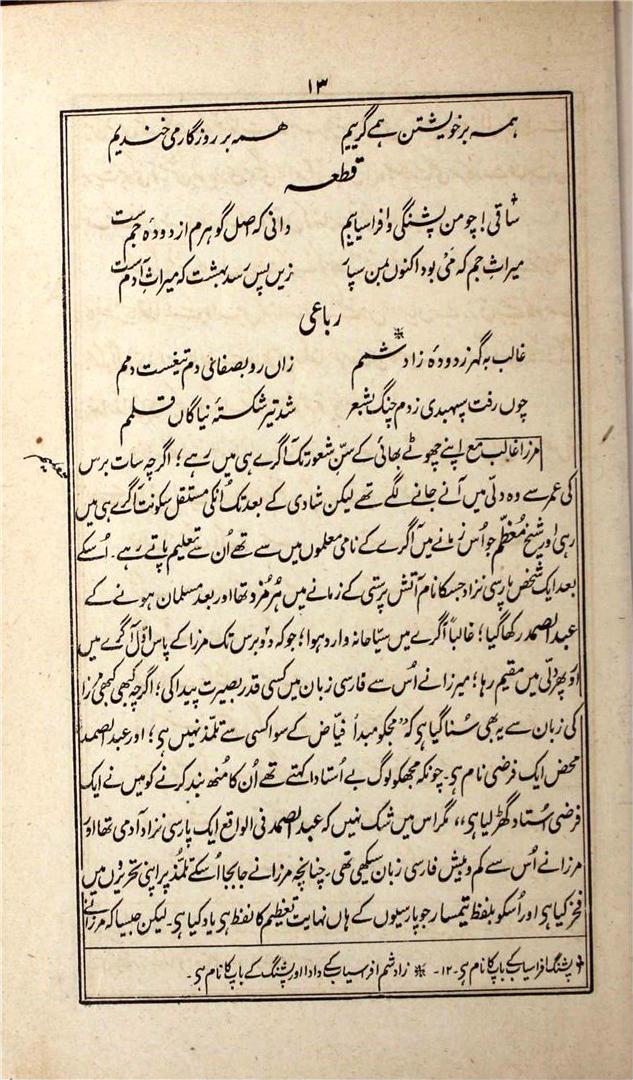 ۱۳
ہمہ بر خویشتن ہمے گرییم ہمہ بر روزگار می خندیم
قطعہ
ساقی! چو من پشنگی و افراسیابیم دانی کہ اصل گوہرم از دودۂ جم ست
میراثِ جم کہ مَی بود اکنوں بمن سپار زیں پس رسد بہشت کہ میراثِ آدم ست
رباعی
غالب بہ گہر ز دودۂ زادشمم زاں رو بصفائی دم تیغست دمم
چوں رفت سپہبدی زدم چنگ بشعر شد تیر شکستۂ نیاگاں قلمم
مرزا غالب مع اپنے چھوٹے بھائی کے سنِّ شعور تک آگرے ہی میں رہے؛ اگرچہ سات برس
تعلیم
کی عمر سے وہ دلّی میں آنے جانے لگے تھے لیکن شادی کے بعد تک انکی مستقل سکونت آگرے ہی میں
رہی اور شیخ معظّم جو اُس زمانے میں آگرے کے نامی معلموں میں سے تھے اُن سے تعلیم پاتے رہے۔ اُسکے
بعد ایک شخص پارسی نژاد جسکا نام آتش پرستی کے زمانے میں ہُرمُزد تھا اور بعد مسلمان ہونے کے
عبدالصمد رکھا گیا؛ غالباً آگرے میں سیّاحانہ وارد ہوا؛ جو کہ دو برس تک مرزا کے پاس اوّل آگرے میں
اور پھر دلّی میں مقیم رہا؛ میرزا نے اُس سے فارسی زبان میں کسی قدر بصیرت پیدا کی؛ اگرچہ کبھی کبھی مرزا
کی زبان سے یہ بھی سُنا گیا ہی کہ ”مجکو مبدأ فیّاض کے سوا کسی سے تلمّذ نہیں ہی؛ اور عبدالصمد
محض ایک فرضی نام ہی۔ چونکہ مجھکو لوگ بے اُستادا کہتے تھے اُن کا مُنھ بند کرنے کو میں نے ایک
فرضی اُستاد گھڑ لیا ہی“ مگر اس میں شک نہیں کہ عبدالصمد فی الواقع ایک پارسی نژاد آدمی تھا اور
مرزا نے اُس سے کم و بیش فارسی زبان سیکھی تھی۔ چنانچہ مرزا نے جا بجا اُسکے تلمّذ پر اپنی تحریروں میں
فخر کیا ہی اور اُسکو بلفظ تیمسار جو پارسیوں کے ہاں نہایت تعظیم کا لفظ ہی یاد کیا ہی۔ لیکن جیسا کہ مرزا نے
‡ پشنگ افراسیاب کے باپ کا نام ہی۔ ۱۲۔ ※ زادشم افراسیاب کے دادا اور پشنگ کے باپ کا نام ہی۔